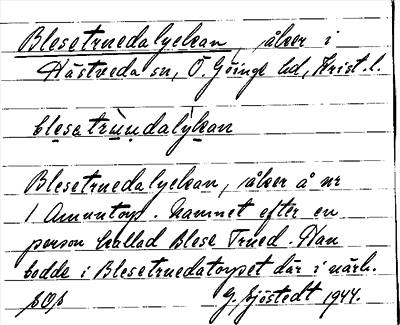 Blesetruedalyckan, åker i
Hästveda sn, Ö. Göinge hd, Krist. l.
blesetrùndalỳkan
Blesetruedalyckan, åker å nr
1 Amuntorp. Namnet efter en
person kallad Blese Trued. Han
bodde i Blesetruedatorpet där i närh.
G. Sjöstedt 1944.